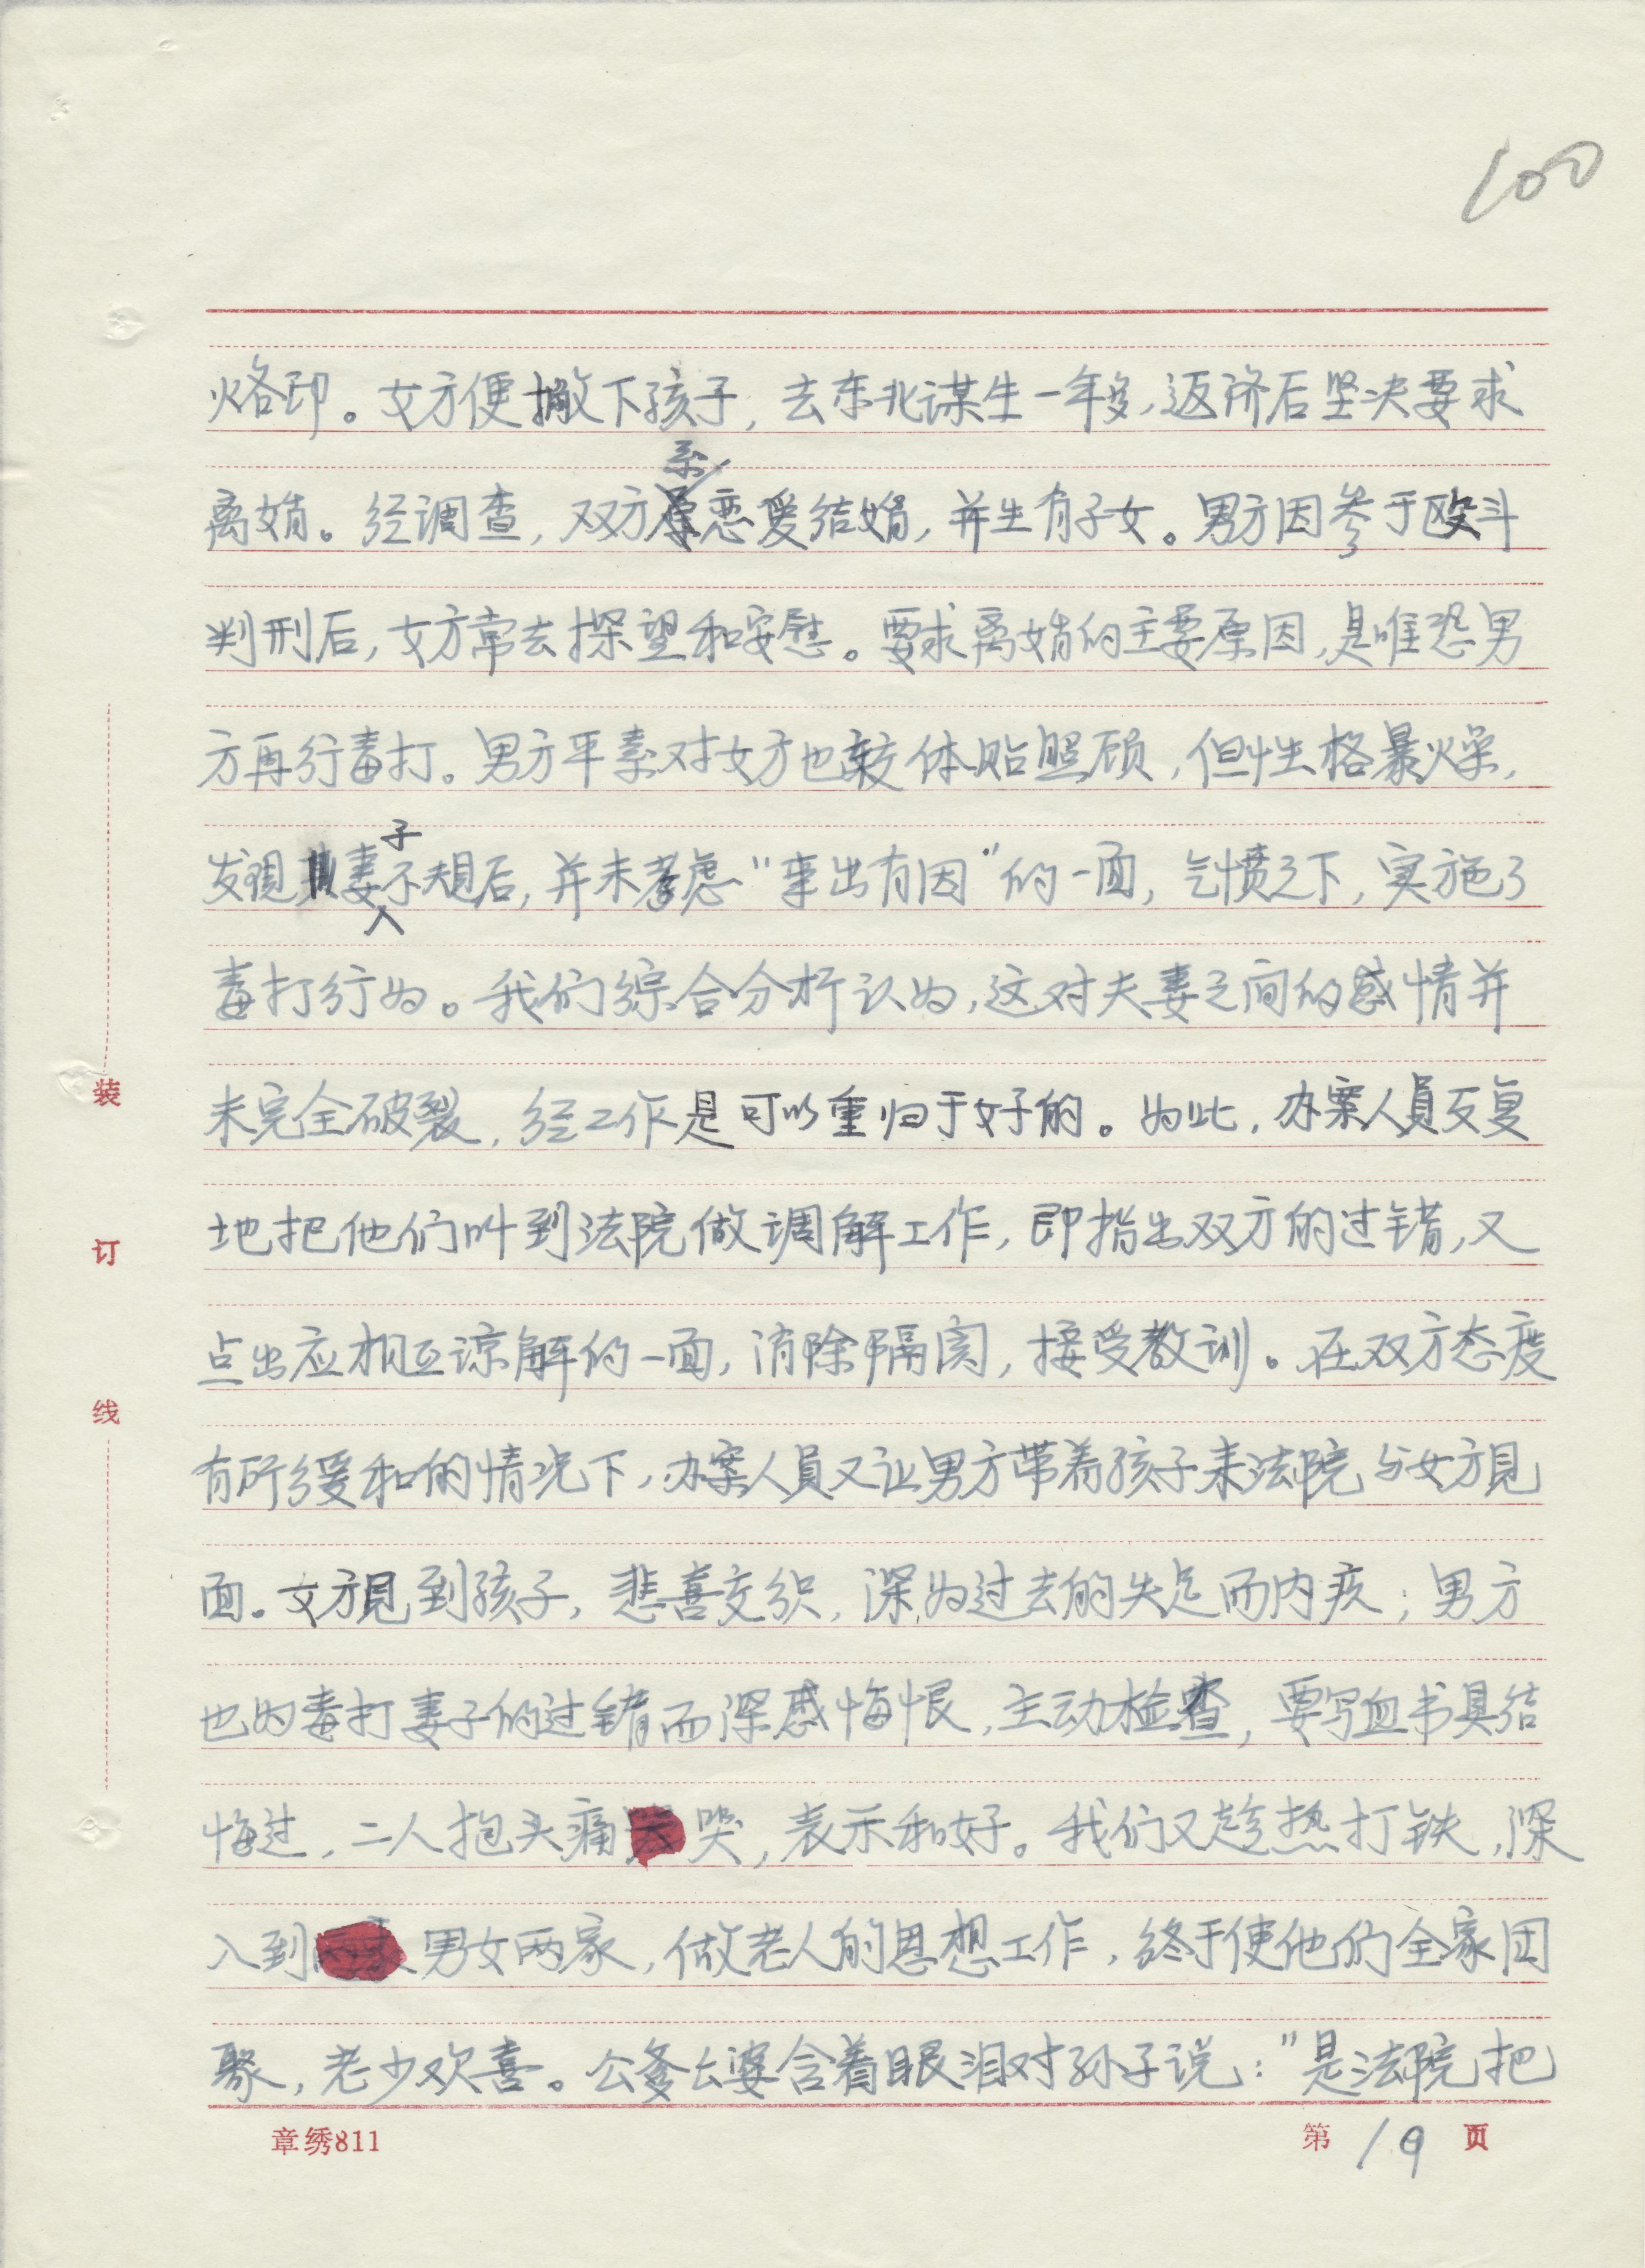 100
烙印。女方便撇下孩子，去东北谋生一年多，返济后坚决要求
离婚。经调查，双方系恋爱结婚，并生有子女。男方因参于殴斗
判刑后，女方常去探望和安慰。要求离婚的主要原因，是唯恐男
方再行毒打。男方平素对女方也较体贴照顾，但性格暴燥，
发现妻子不规后，并未考虑“事出有因”的一面，气愤之下，实施了
毒打行为。我们综合分析认为，这对夫妻之间的感情并
未完全破裂，经工作是可以重归于好的。为此，办案人員反复
地把他们叫到法院做调解工作，即指出双方的过错，又
点出应相互谅解的一面，消除隔阂，接受教训。在双方态度
有所缓和的情况下，办案人員又让男方带着孩子来法院与女方見
面。女方見到孩子，悲喜交织，深为过去的失足而内疚；男方
也为毒打妻子的过错而深感悔恨，主动检查，要写血书具结
悔过，二人抱头痛哭，表示和好。我们又趁热打铁，深
入到男女两家，做老人的思想工作，终于使他们全家团
聚，老少欢喜。公爹公婆含着眼泪对孙子说：“是法院把
装
订
线
章绣811
第 19 页